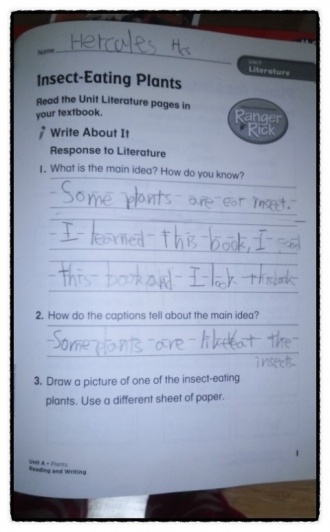 Name Hercules
Unit
Literature
Insect-Eating Plants
Read the Unit Literature pages in
your textbook.
Ranger
Rick
Write About It
Response to Literature
1. What is the main idea? How do you know?
Some plants are eat insect.
I learned this book, I read
this book and I look this book
2. How do the captions tell about the main idea?
Some plants are like eat the
insects
3. Draw a picture of one of the insect-eating
plants. Use a different sheet of paper.
Unit A • Plants
Reading and Writing
1